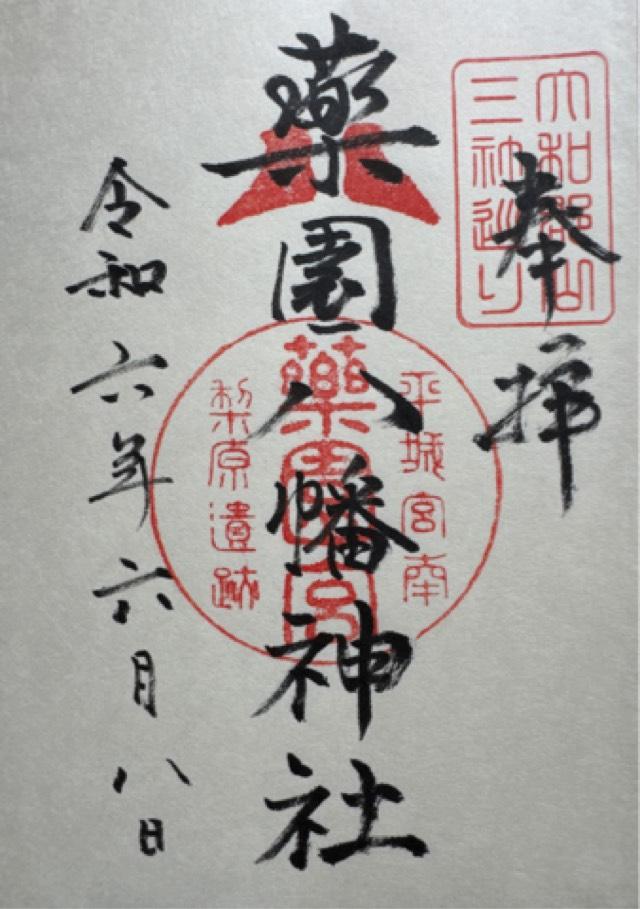 大和郡山
三神巡り
奉拝
薬園八幡神社
平城宮南
薬園宮
梨原遺跡
令和六年六月八日